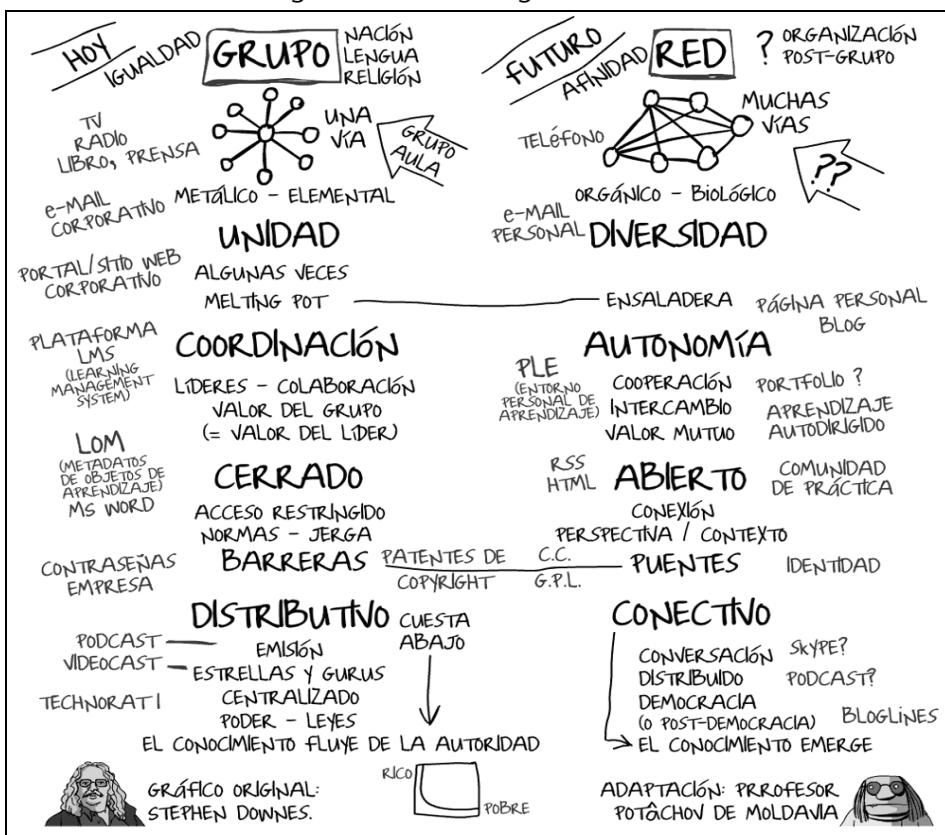 HOY
IGUALDAD
GRUPO
NACIÓN
LENGUA
RELIGIÓN
TV
RADIO
LIBRO, PRENSA
UNA
VÍA
GRUPO
AULA
e-MAIL
CORPORATIVO
METÁLICO - ELEMENTAL
UNIDAD
PORTAL/SITIO WEB
CORPORATIVO
ALGUNAS VECES
MELTING POT
PLATAFORMA
LMS
(LEARNING
MANAGEMENT
SYSTEM)
COORDINACIÓN
LÍDERES - COLABORACIÓN
VALOR DEL GRUPO
(= VALOR DEL LÍDER)
LOM
(METADATOS
DE OBJETOS DE
APRENDIZAJE)
MS WORD
CERRADO
ACCESO RESTRINGIDO
NORMAS - JERGA
CONTRASEÑAS
EMPRESA
BARRERAS
PATENTES DE C.C.
COPYRIGHT G.P.L.
DISTRIBUTIVO
CUESTA
ABAJO
PODCAST
VIDEOCAST
TECHNORATI
EMISIÓN
ESTRELLAS Y GURUS
CENTRALIZADO
PODER - LEYES
EL CONOCIMIENTO FLUYE DE LA AUTORIDAD
RICO
POBRE
GRÁFICO ORIGINAL:
STEPHEN DOWNES.
FUTURO
AFINIDAD
RED
? ORGANIZACIÓN
POST-GRUPO
TELÉFONO
MUCHAS
VÍAS
??
ORGÁNICO - BIOLÓGICO
e-MAIL
PERSONAL
DIVERSIDAD
ENSALADERA
PÁGINA PERSONAL
BLOG
AUTONOMÍA
PLE
(ENTORNO
PERSONAL DE
APRENDIZAJE)
COOPERACIÓN
INTERCAMBIO
VALOR MUTUO
PORTFOLIO ?
APRENDIZAJE
AUTODIRIGIDO
RSS
HTML
ABIERTO
COMUNIDAD
DE PRÁCTICA
CONEXIÓN
PERSPECTIVA / CONTEXTO
PUENTES
IDENTIDAD
CONECTIVO
CONVERSACIÓN
DISTRIBUIDO
DEMOCRACIA
(O POST-DEMOCRACIA)
EL CONOCIMIENTO EMERGE
SKYPE?
PODCAST?
BLOGLINES
ADAPTACIÓN: PRROFESOR
POTÂCHOV DE MOLDAVIA